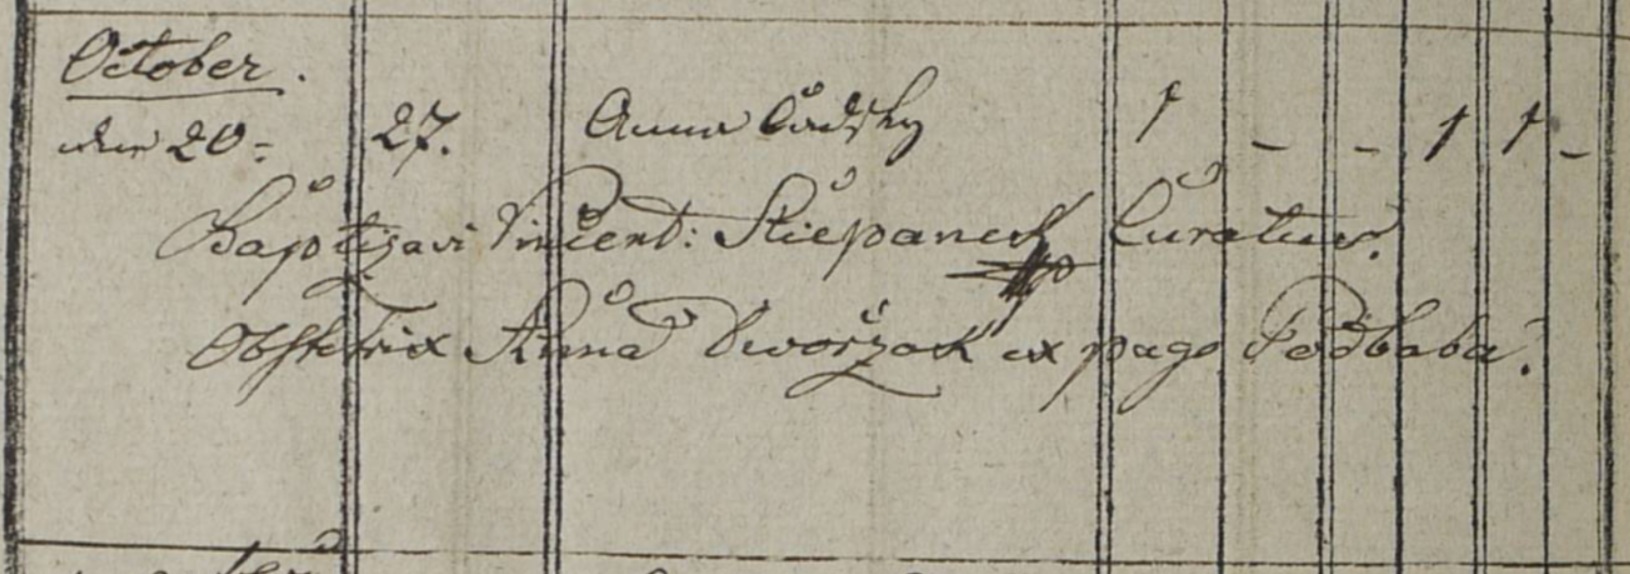 October.
den 20= 27. Anna Čadsky 1 – – 1 1 –
Baptizavi Vincent: Stiepanek Curatus.
Obstetrix Anna Dworžak ex pago Podbaba.